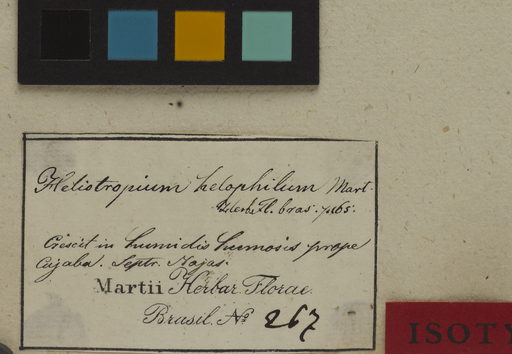 Heliotropium helophilum Mart.
Herb. Fl. bras. p. 165.
Crescit in humidis humosis prope
Cujaba. Septr. Majas.
Martii Herbar. Florae
Brasil. No 267
ISOTY